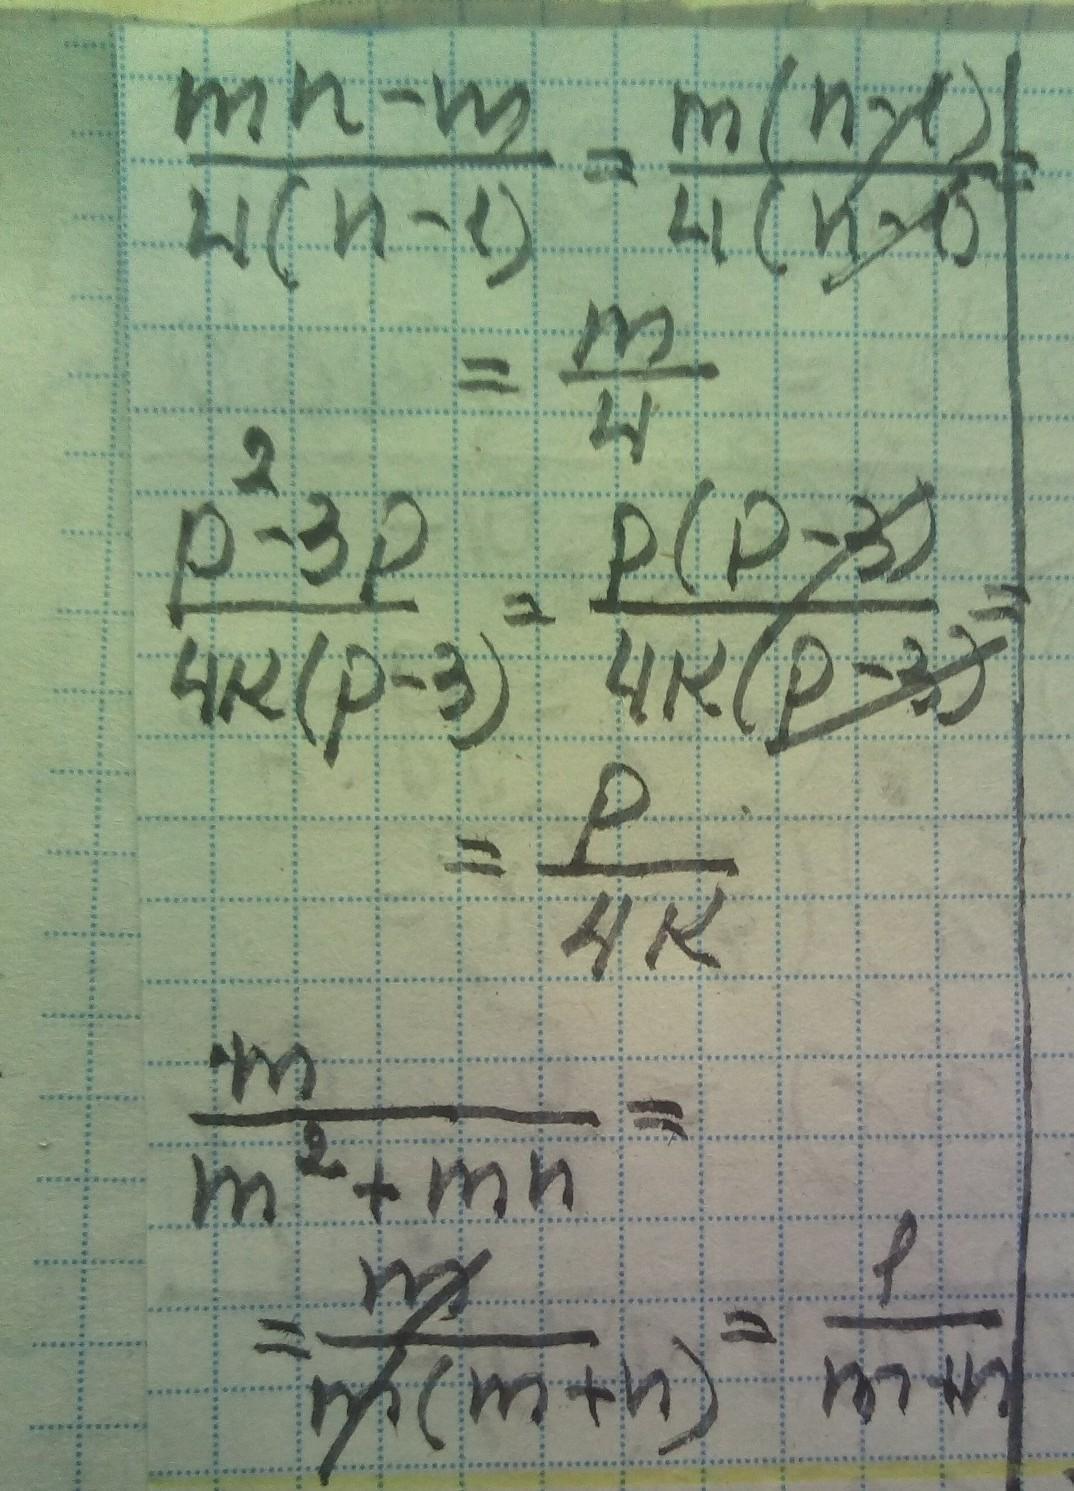 (mn-m)/(4(n-1)) = (m(n-1))/(4(n-1)) =
= m/4
(p²-3p)/(4k(p-3)) = (p(p-3))/(4k(p-3)) =
= p/(4k)
m/(m²+mn) =
= m/(m(m+n)) = 1/(m+n)